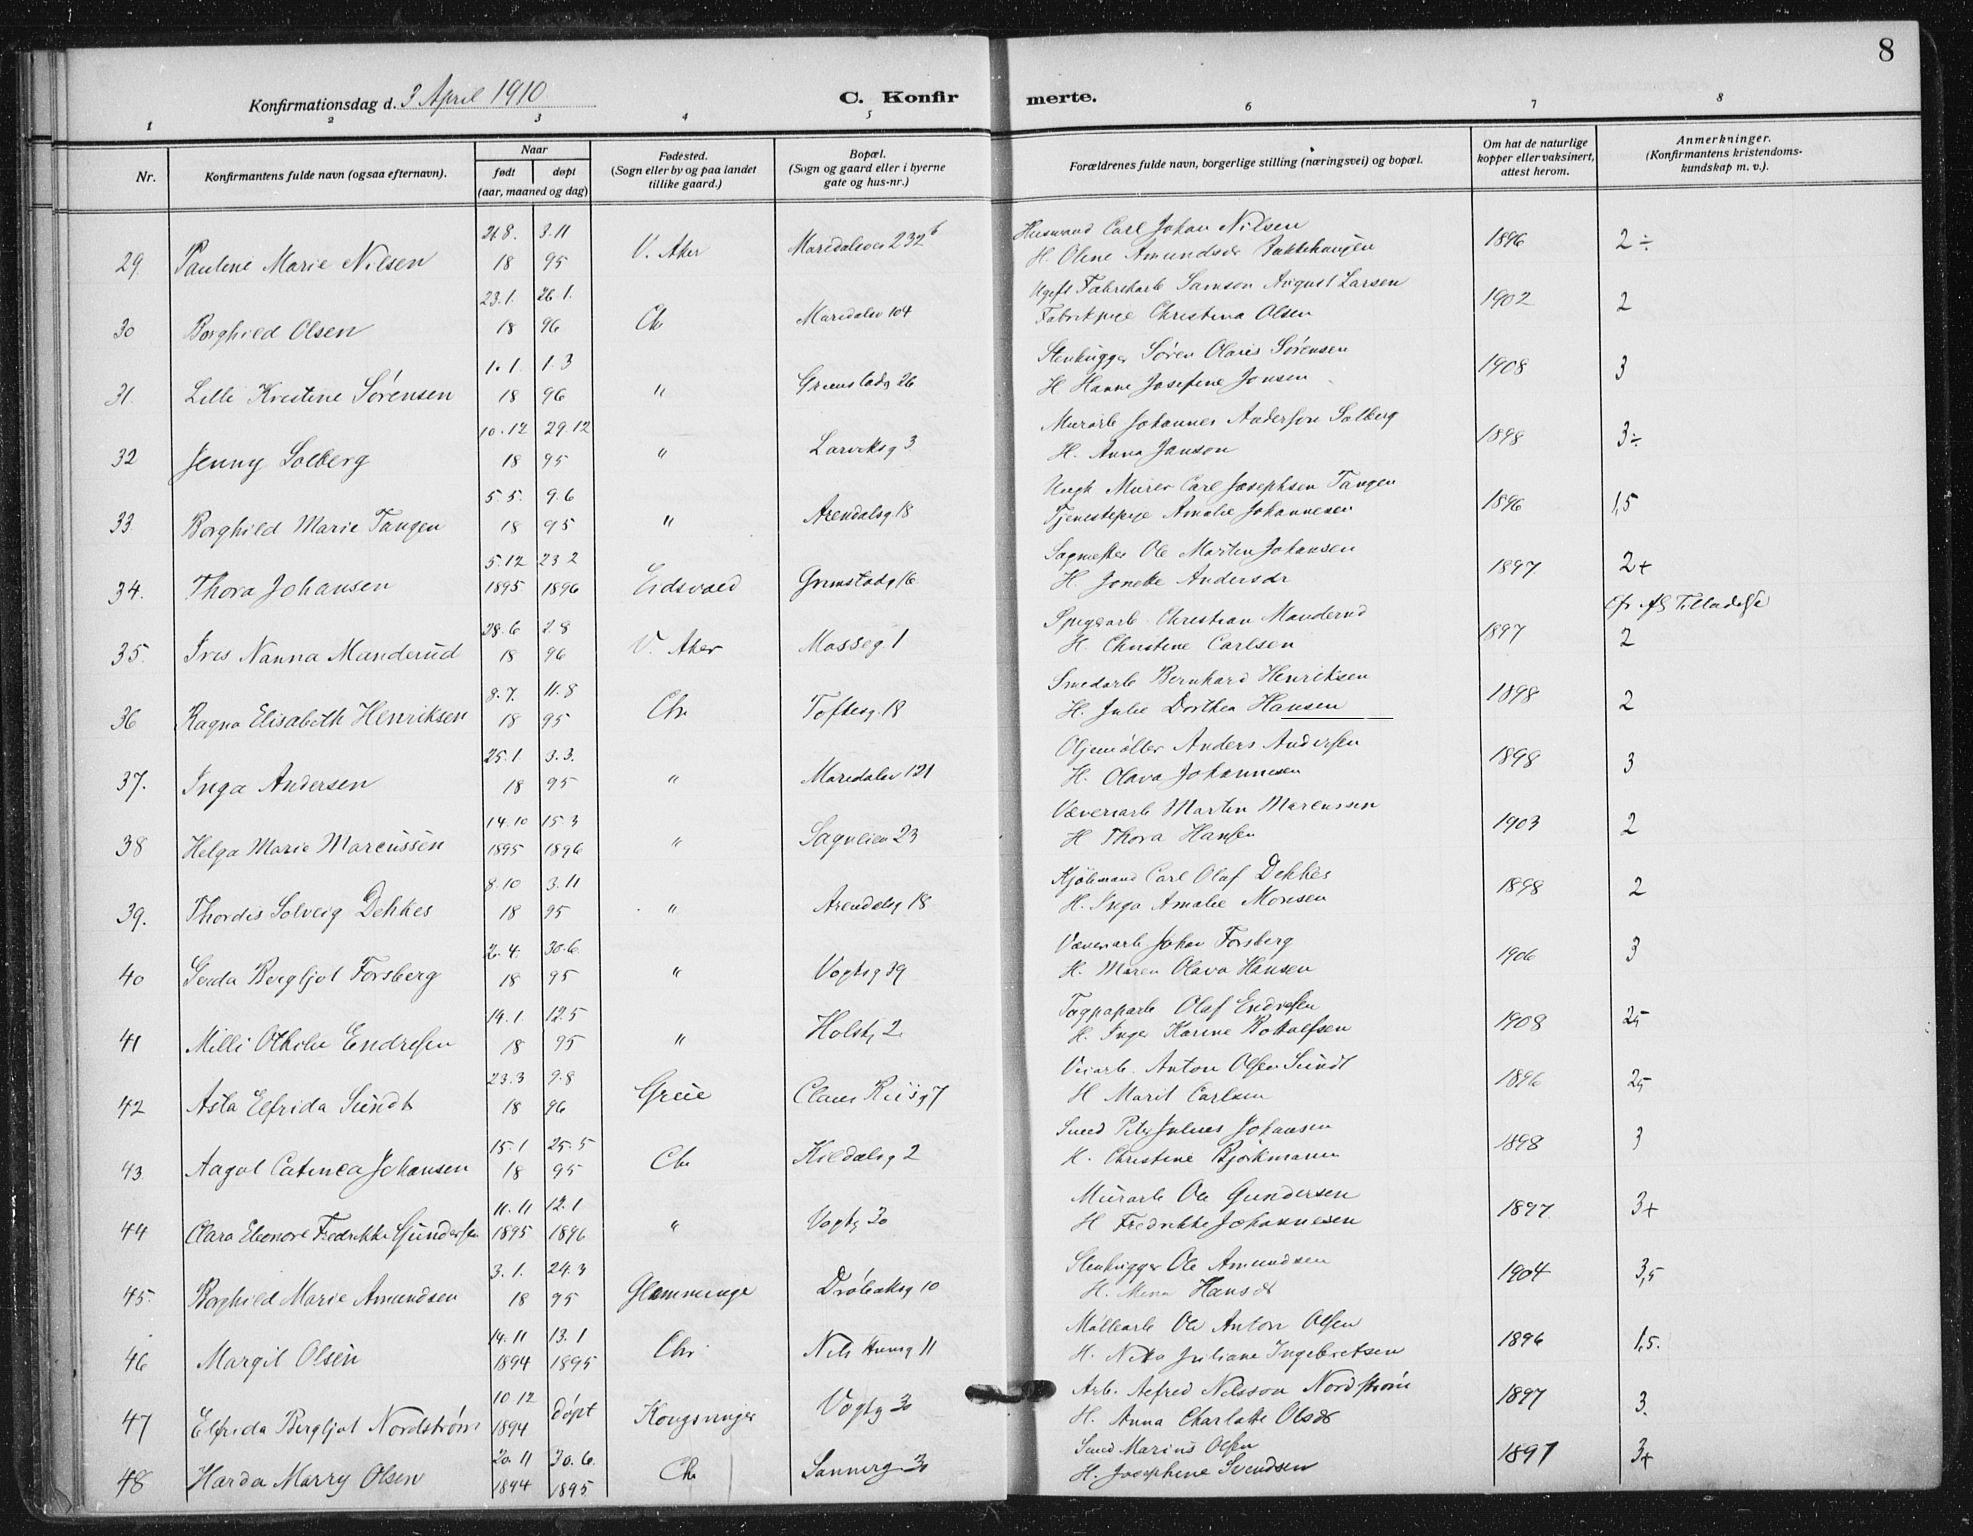 8
Konfirmationsdag d. 3 April 1910
C. Konfirmerte.
1 2 3 4 5 6 7 8
Nr.
Konfirmantens fulde navn (ogsaa efternavn).
Naar
født døpt
(aar, maaned og dag)
Fødested.
(Sogn eller by og paa landet
tillike gaard.)
Bopæl.
(Sogn og gaard eller i byerne
gate og hus-nr.)
Forældrenes fulde navn, borgerlige stilling (næringsvei) og bopæl.
Om hat de naturlige
kopper eller vaksinert,
attest herom.
Anmerkninger.
(Konfirmantens kristendoms-
kundskap m. v.).
21.8. 3.11 Husmand Carl Johan Nilsen
29. Pauline Marie Nilsen 18 95 V. Aker Maridalsvei 232b H. Olene Amundsdr Bakkehaugen 1896 2 ÷
23.1. 26.1. Ugift Fabrikarb Samson August Larsen
30 Borghild Olsen 18 96 Chr Maridalsv 104 Fabrikpige Christina Olsen 1902 2
1.1. 1.3 Stenhugger Søren Olaus Sørensen
31. Lilli Kristine Sørensen 18 96 " Grimstadg 26 H Hanne Josefine Jonsen 1908 3
10.12 29.12 Murarb Johannes Anderson Solberg
32 Jenny Solberg 18 95 " Larviksg 3 H. Anna Janson 1898 3÷
5.5. 9.6 Ungk Murer Carl Josephsen Tangen
33. Borghild Marie Tangen 18 95 " Arendalsg 18 Tjenestepige Amalie Johannesen 1896 1,5
5.12 23 2 Sagmester Ole Martin Johansen
34. Thora Johansen 1895 1896 Eidsvold Grimstadg 16 H. Jonette Andersdr 1897 2+
28.6 2 8 Spigerarb. Christian Manderud
35. Iris Nanna Manderud 18 96 V. Aker Mosseg. 1 H. Christine Carlsen 1897 2
8.7. 11.8 Smedarb Bernhard Henriksen
36 Ragna Elisabeth Henriksen 18 95 Chr Toftesg. 18 H. Julie Dorthea Hansen 1898 2
25.1. 3.3. Oljemøller Anders Andersen
37. Inga Andersen 18 95 " Maridalsv 121 H. Olava Johannesen 1898 3
14.10 15.3 Væveriarb Martin Marcussen
38 Helga Marie Marcussen 1895 1896 " Sagveien 23 H Thora Hansen 1903 2
8.10 3.11 Kjøbmand Carl Olaf Dekkes
39. Thordis Solveig Dekkes 18 95 " Arendalsg 18 H. Inga Amalie Monsen 1898 2
2.4. 30.6. Væveriarb Johan Forsberg
40 Gerda Bergljot Forsberg 18 95 " Vogtsg 39 H. Maren Olava Hansen 1906 3
14.1. 12.5 Tagpaparb Olaf Endresen
41 Milli Othilie Endresen 18 95 " Holstg 2 H. Inger Karine Rottolfsen 1908 25
23.3 9.8 Veiarb. Anton Olsen Sundt
42 Asta Elfrida Sundt 18 96 Grue Claus Riisg 7 H Marit Carlsen 1896 25
15.1 25.5 Smed Peter Julius Johansen
43. Aagot Catinca Johansen 18 95 Chr Kildalsg 2 H. Christine Bjørkmann 1898 3
11.11 12.1 Murarb Ole Gundersen
44 Clara Eleonore Fredrikke Gundersen 1895 1896 " Vogtsg 30 H Fredrikke Johannesen 1897 3+
3.1. 24.3 Stenhugger Ole Amundsen
45. Borghild Marie Amundsen 18 95 Glemminge Drøbaksg 10 H. Mina Hansdr 1904 3,5
14.11 13.1 Møllearb Ole Anton Olsen
46 Margit Olsen 1894 1895 Chr. Nils Huusg 11 H. Netta Juliane Ingebretsen 1896 1,5.
10 12 døpt Arb. Alfred Nilsson Nordstrøm
47 Elfrida Bergljot Nordstrøm 1894 Kongsvinger Vogtsg 30 H. Anna Charlotte Olsdr 1897 3.
20.11 30.6. Smed Marius Olsen
48 Harda Marry Olsen 1894 1895 Chr Sannerg 30 H. Josephine Svendsen 1897 3+